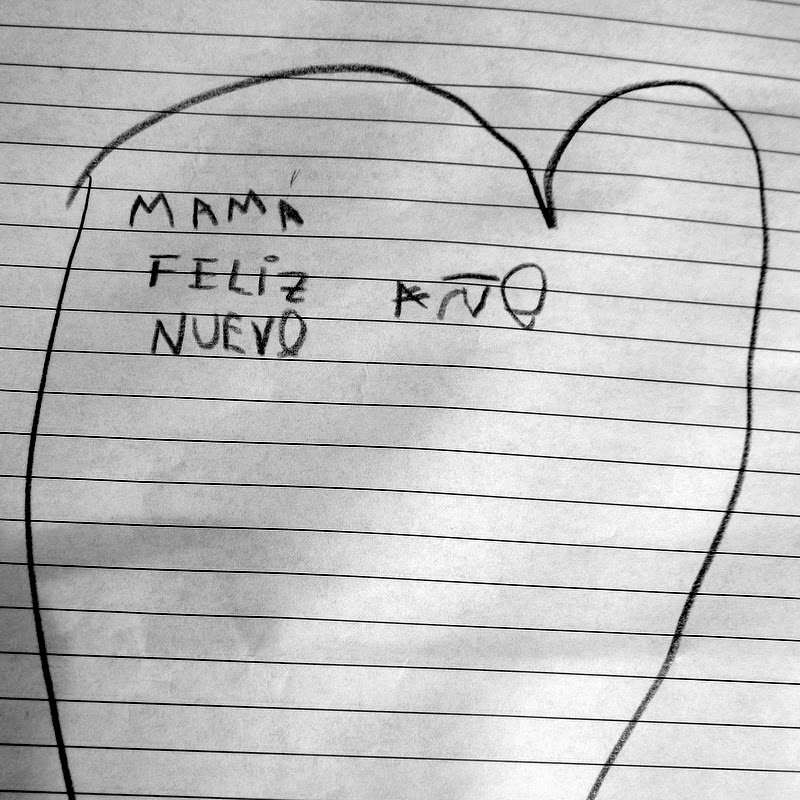 MAMÁ
FELIZ AÑO
NUEVO